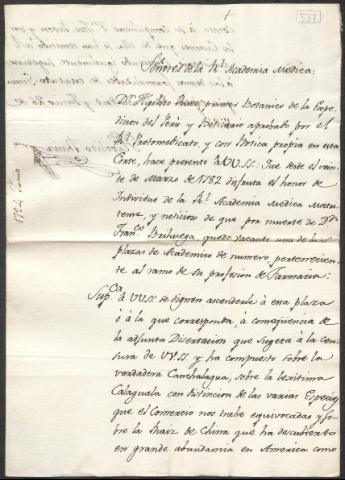 537
Señores de la Rl. Academia Medica:
Dn. Hipólito Ruiz, primer Botanico de la Expe-
dicion del Perú y Boticario aprobado por el
Rl. Protomedicato, y con Botica propia en esta
Corte, hace presente à VV.SS. Que desde el vein-
te de Marzo de 1782 disfruta el honor de
Individuo de la Rl. Academia Medica Matri-
tense, y noticioso de que por muerte de Dn.
Franco. Brihuega, quedo vacante una de las
plazas de Academico de numero, perteneciente
al ramo de su profesion de Farmacia:
Supca. à VV.SS. se dignen ascenderle à esa plaza
ó à la que corresponda, à conseqüencia de
la adjunta Disertacion que sugeta à la cen-
sura de VV.SS. y ha compuesto sobre la
verdadera Canchalagua, sobre la lexitima
Calaguala con distincion de las varias Especies
que el Comercio nos trahe equivocadas y so-
bre la Raiz de China que ha descubierto
en grande abundancia en America como